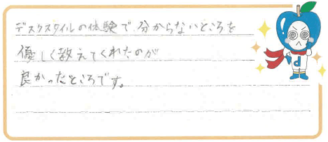 デスクスタイルの体験で分からないところを
優しく教えてくれたのが
良かったところです。
d